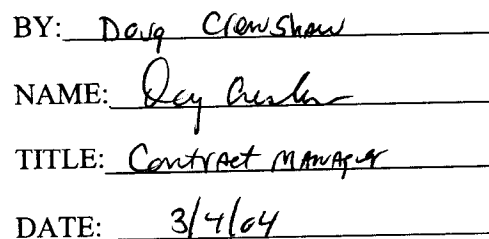 BY: Doug Crenshaw
NAME:
TITLE: Contract Manager
DATE: 3/4/04